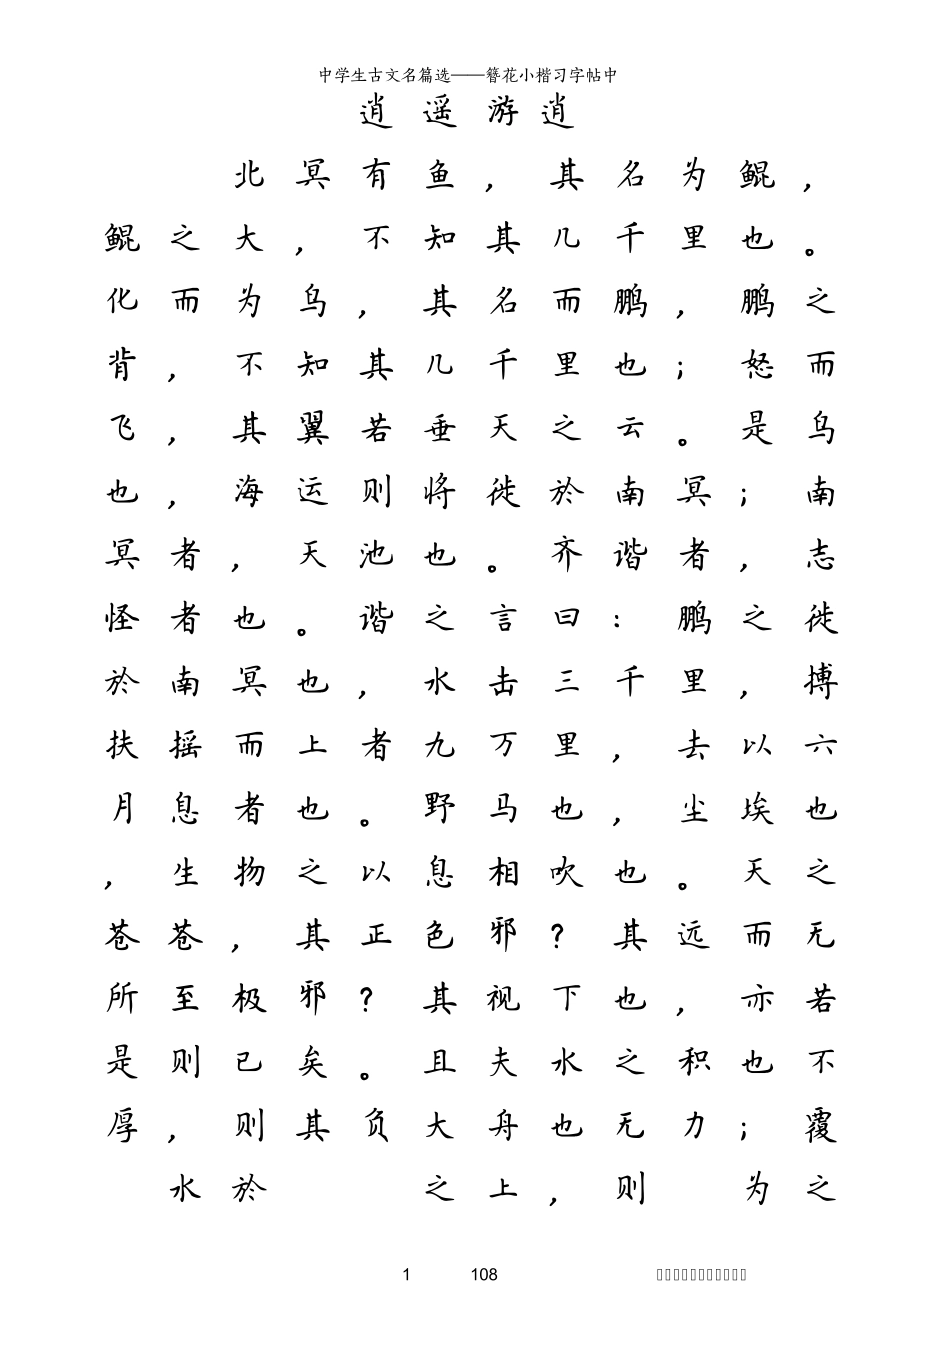 中学生古文名篇选——簪花小楷习字帖中
逍遥游逍
北冥有鱼，其名为鲲，
鲲之大，不知其几千里也。
化而为鸟，其名而鹏，鹏之
背，不知其几千里也；怒而
飞，其翼若垂天之云。是鸟
也，海运则将徙於南冥；南
冥者，天池也。齐谐者，志
怪者也。谐之言曰：鹏之徙
於南冥也，水击三千里，搏
扶摇而上者九万里，去以六
月息者也。野马也，尘埃也
，生物之以息相吹也。天之
苍苍，其正色邪？其远而无
所至极邪？其视下也，亦若
是则已矣。且夫水之积也不
厚，则其负大舟也无力；覆
水於 之上，则 为之
1 108